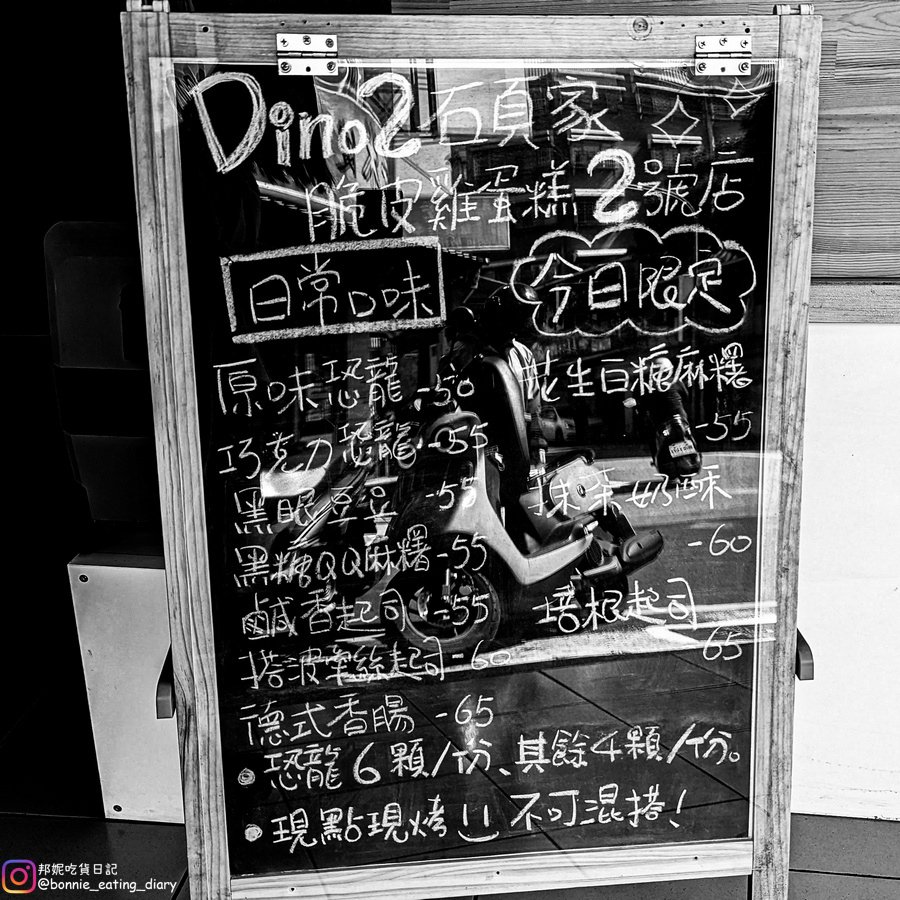 Dino2石頁家
脆皮雞蛋糕2號店
日常口味
原味恐龍-50
巧克力恐龍-55
黑眼豆豆-55
黑糖QQ麻糬-55
鹹香起司-55
搭波牽絲起司-60
德式香腸-65
今日限定
花生白糖麻糬
-55
抹茶奶酥
-60
培根起司
65
恐龍6顆/份、其餘4顆/份。
現點現烤 不可混搭!
邦妮吃貨日記
@bonnie_eating_diary